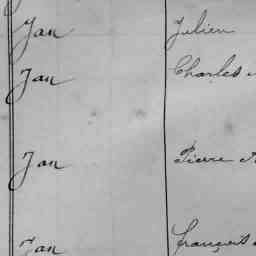 Jan Julien
Jan Charles
Jan Pierre
Jan François